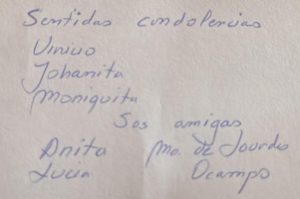 Sentidas condolencias
Vinicio
Johanita
Moniquita
Sos amigas
Anita Ma. de Lourdes
Lucia Ocampo